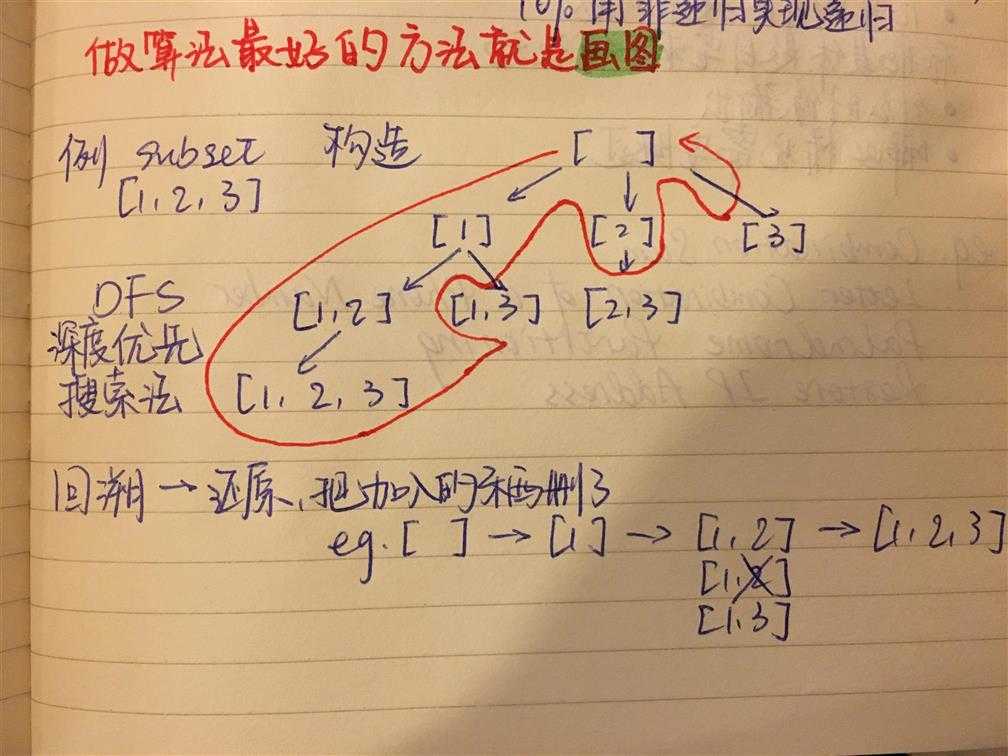 10% 用非递归实现递归
做算法最好的方法就是画图
例 subset 构造 [ ]
[1,2,3]
[1] [2] [3]
DFS [1,2] [1,3] [2,3]
深度优先
搜索法 [1, 2, 3]
回溯→还原,把加入的东西删了
eg. [ ] → [1] → [1,2] → [1,2,3]
[1,2]
[1,3]